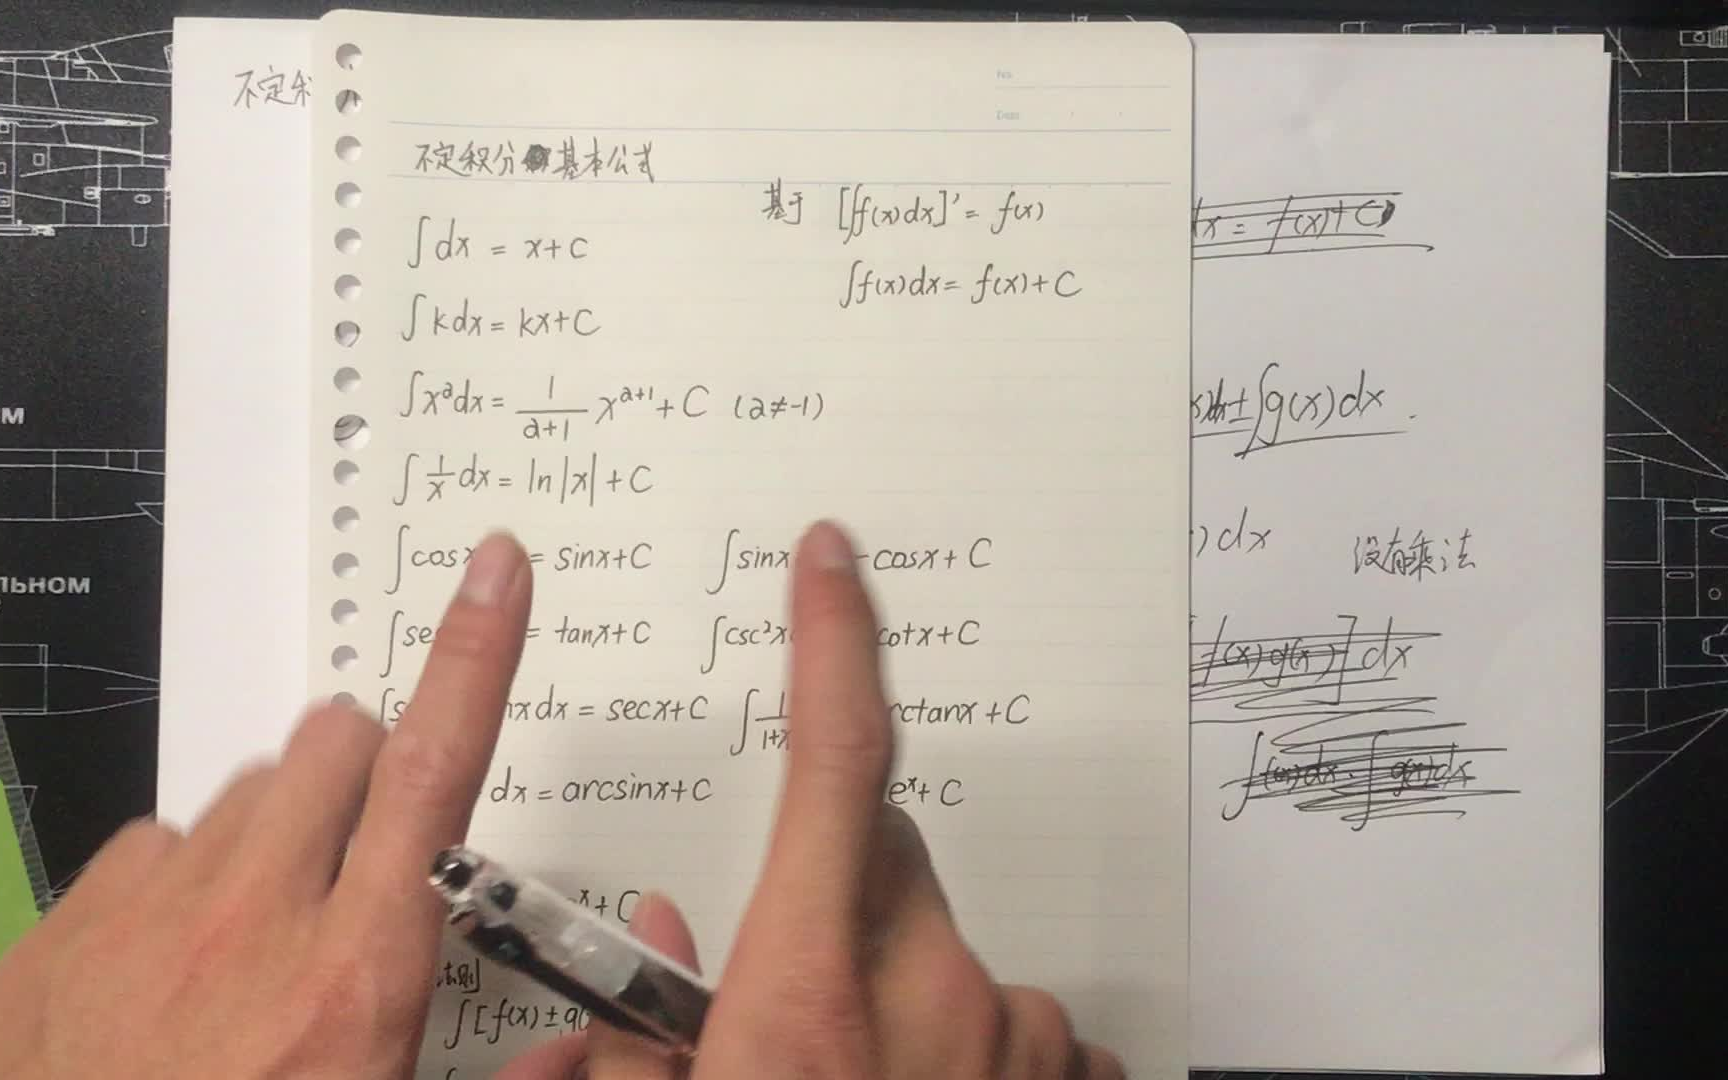 不定积
No.
Date
不定积分基本公式
基于 [∫f(x)dx]' = f(x)
∫dx = x+C
∫f(x)dx = f(x)+C
∫kdx = kx+C
∫x^a dx = 1/(a+1) x^(a+1) + C (a≠-1)
∫1/x dx = ln|x| + C
∫cosx = sinx+C ∫sinx -cosx + C
= tanx+C ∫csc²x cotx+C
xdx = secx+C ∫ arctanx + C
dx = arcsinx+C e^x + C
x + C
法则
∫[f(x) ± g(
dx = f(x)+C
dx ± ∫g(x)dx .
) dx 没有乘法
f(x)g(x)] dx
∫f(x)dx · ∫g(x)dx
М
ЛЬНОМ